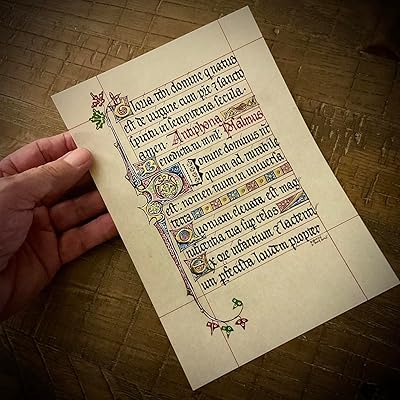 Gloria tibi domine q natus
est de virgine cum pře ⁊ sancto
spiritu in sempiterna secula
amen Antiphona Psalmus
Benedicta tu in mł
Domine dominus nr̄
quam ad mirabile
est nomen tuum in universa
terra
Quoniam elevata est mag
nificencia tua sup celos
Ex ore infantium ⁊ lacten
um pfecista laudem propter